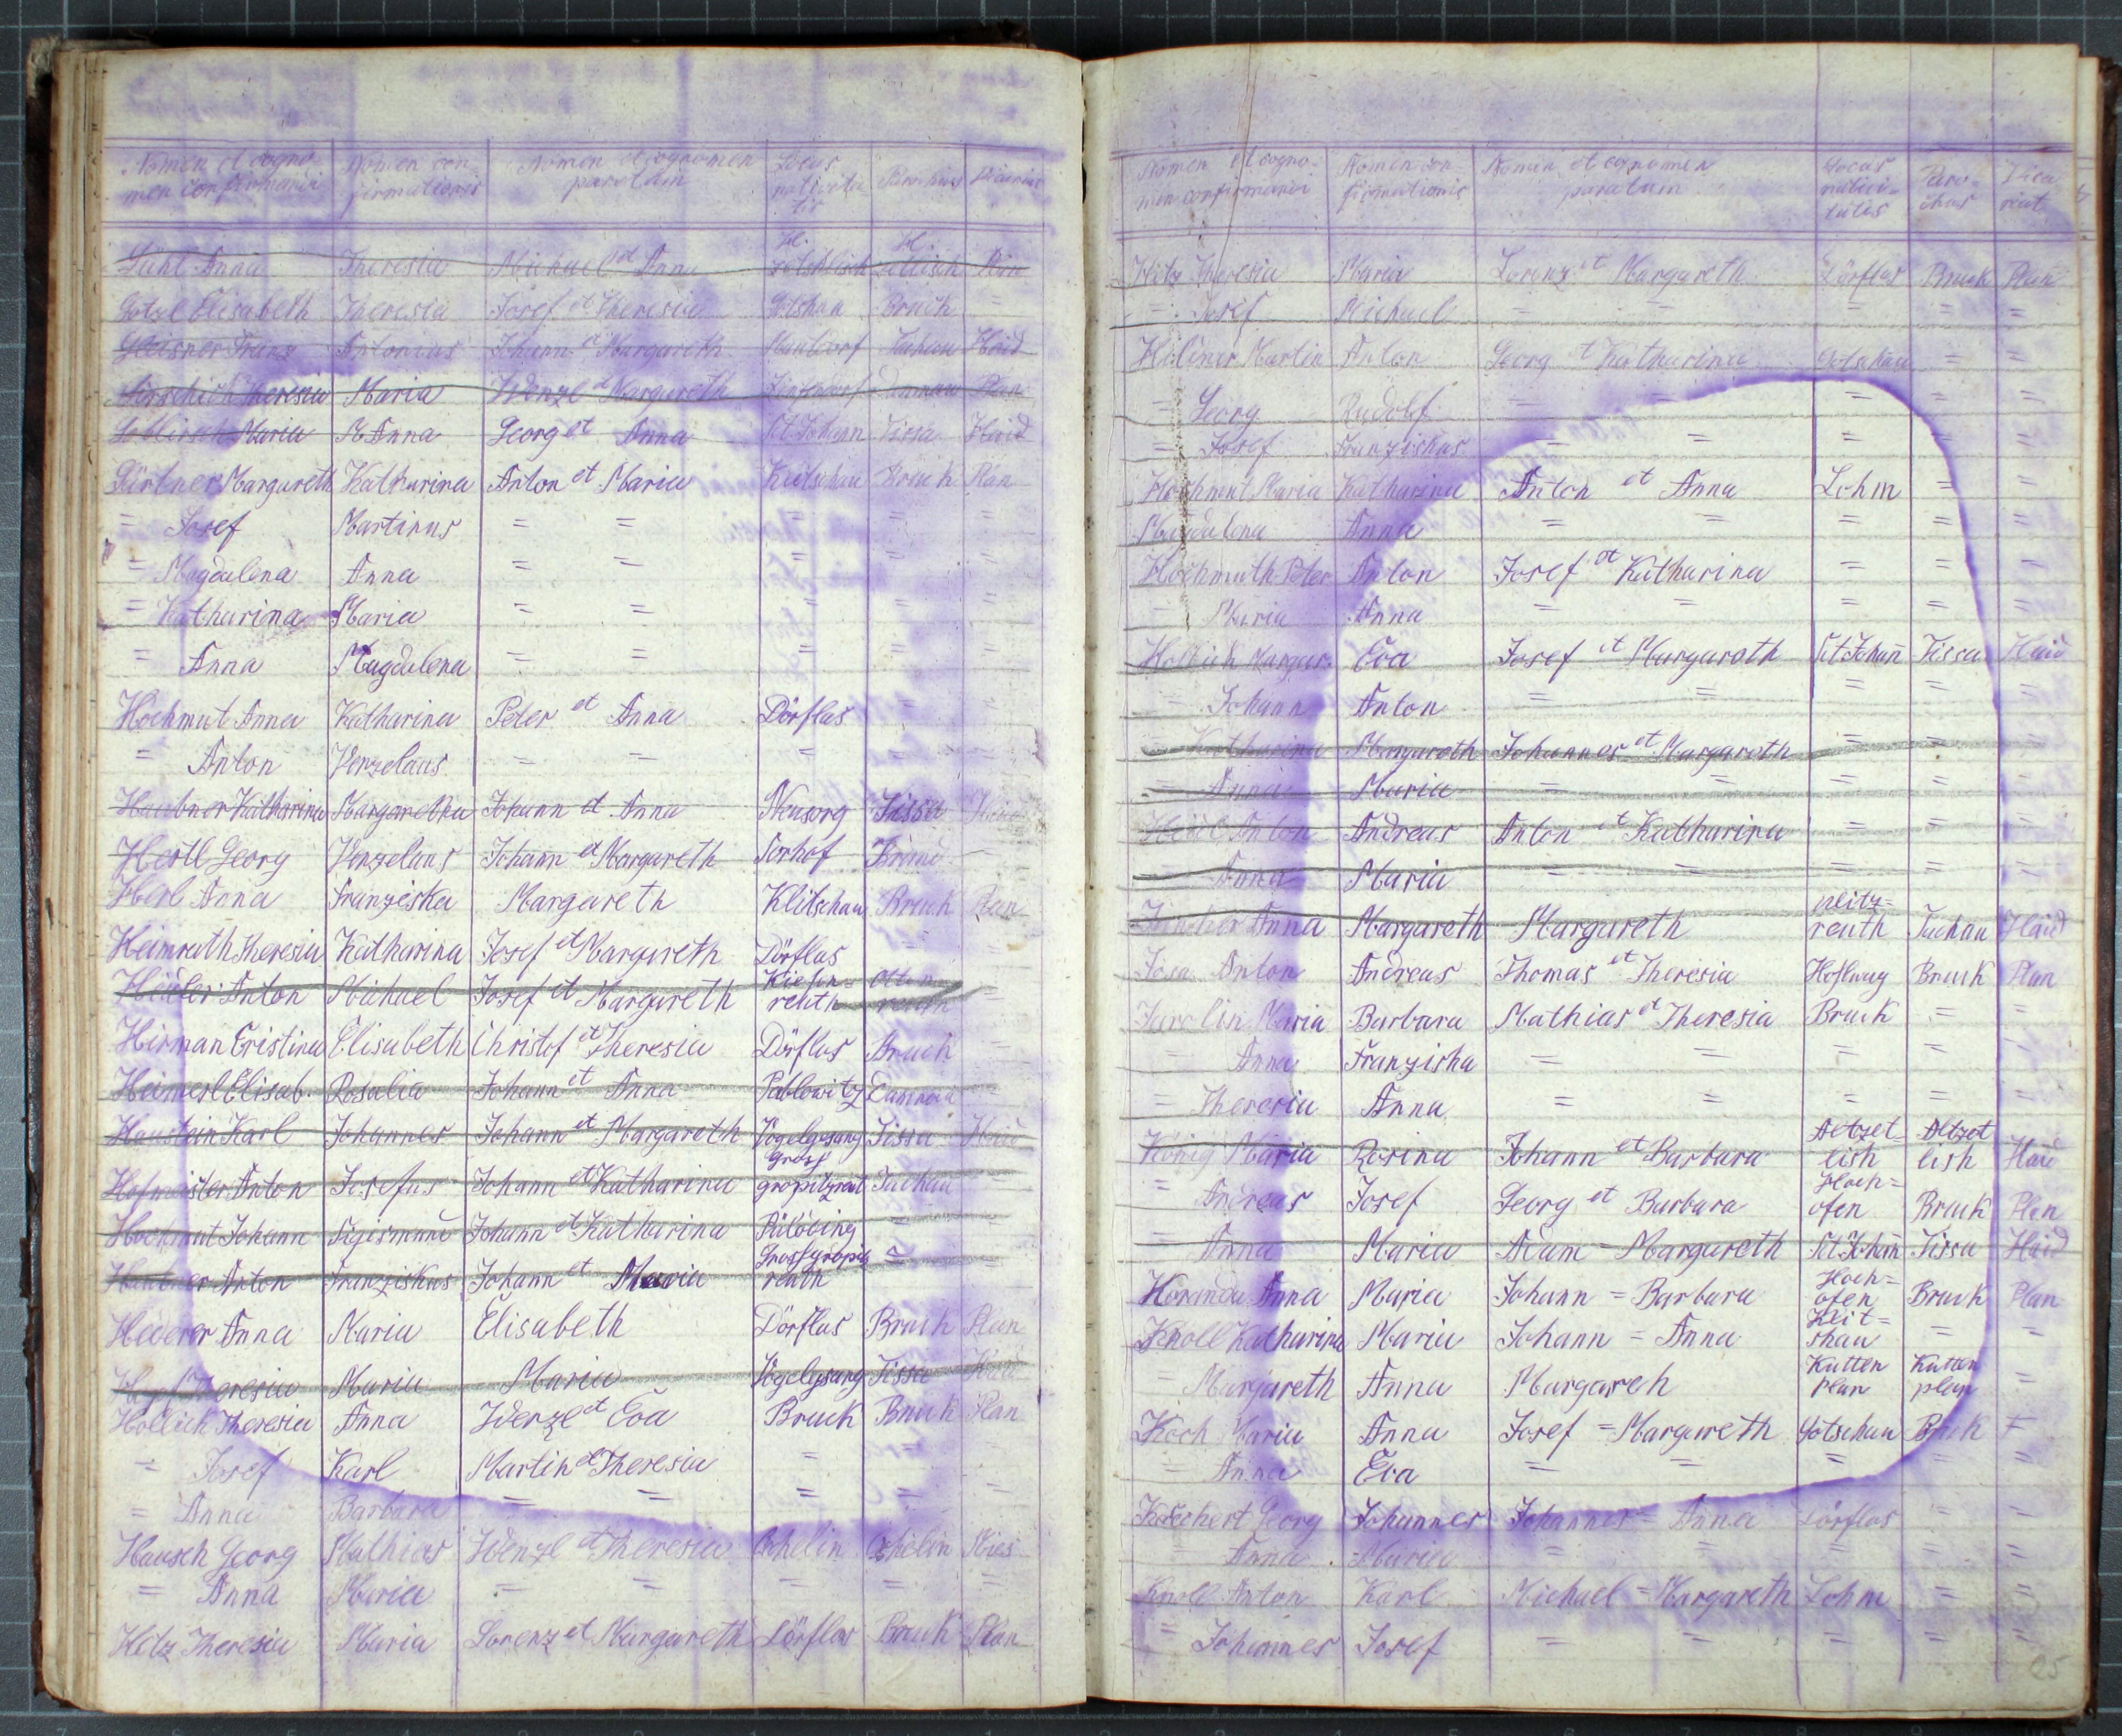 Nomen et cogno- Nomen con- Nomen et cognomen Locus
men confirmandi firmationis parentum nativita- Parochus Vicariat
tis
Anna Theresia Michael et Anna
Götzl Elisabeth Theresia Josef et Theresia Götshau Bruck =
Franz Antonius Johann et Margareth Tachau Haid
Theresia Maria Wenzl et Margareth Damnau Plan
Maria M Anna Georg et Anna St Johann Tissa Haid
Gärtner Margareth Katharina Anton et Maria Klitschau Bruck Plan
= Josef Martinus = = = = =
= Magdalena Anna = = = = =
= Katharina Maria = = = = =
= Anna Magdalena = = = = =
Hochmut Anna Katharina Peter et Anna Dörflas = =
= Anton Venzelaus = = = = =
Haubner Katharina Margaretha Johann et Anna Neusorg Tissa Haid
Hertl Georg Venzelaus Johann et Margareth Sorhof
Herl Anna Franziska Margareth Klitschau Bruck Plan
Heimrath Theresia Katharina Josef et Margareth Dörflas = =
Anton Michael Josef et Margareth reuth
Hirman Cristina Elisabeth Christof et Theresia Dörflas Bruck
Heimerl Elisab. Rosalia Johann et Anna Pablowitz Damnau
Haustein Karl Johannes Johann et Margareth Vogelgesang Tissa Haid
Hofmeister Anton Josefus Johann et Katharina Gross gropitzreut Tachau
Hochmut Johann Sigismund Johann et Katharina =
Haubner Anton Franziskus Johann et Maria Grossgropitz reuth =
Hederer Anna Maria Elisabeth Dörflas Bruck Plan
Theresia Maria Maria Vogelgsang Tissa Haid
Hollich Theresia Anna Wenzl et Eva Bruck Bruck Plan
= Josef Karl Martin et Theresia = = =
= Anna Barbara = = = = =
Hausch Georg Mathias Wenzl et Theresia Oschelin Oschelin Mies
= Anna Maria = = = = =
Hitz Theresia Maria Lorenz et Margareth Dörflas Bruck Plan
Nomen et cogno- Nomen con- Nomen et cognomen Locus Paro- Vica
men confirmandi firmationis parentum nativi- chus riat
tatis
Hitz Theresia Maria Lorenz et Margareth Dörflas Bruck Plan
= Josef Michael = = = = =
Martin Anton Georg et Katharina Gotschau = =
= Georg Rudolf = = = = =
= Josef Franziskus = = = = =
Hochmut Maria Katharina Anton et Anna Lohm = =
Magdalena Anna = = = = =
Hochmuth Peter Anton Josef et Katharina = = =
= Maria Anna = = = = =
Hollich Margar. Eva Josef et Margareth St Johann Tissa Haid
= Johann Anton = = = = =
= Katharina Margareth Johannes et Margareth = = =
= Anna Maria = = = = =
Anton Andreas Anton et Katharina = = =
= Anna Maria = = = = =
Anna Margareth Margareth reuth Tachau Haid
Anton Andreas Thomas et Theresia Bruck Plan
Maria Barbara Mathias et Theresia Bruck = =
= Anna Franziska = = = = =
= Theresia Anna = = = = =
König Maria Rosina Johann et Barbara Haid
= Andreas Josef Georg et Barbara Hoch= ofen Bruck Plan
= Anna Maria Adam = Margareth St Johann Tissa Haid
Anna Maria Johann = Barbara Hoch= ofen Bruck Plan
Knoll Katharina Maria Johann = Anna Klit= shau = =
= Margareth Anna Margareh Kutten plan Kutten plan =
Koch Maria Anna Josef = Margareth Gotschau Bruck =
= Anna Eva = = = = =
Georg Johannes Johannes = Anna Dörflas = =
= Anna Maria = = = = =
Knoll Anton Karl Michael = Margareth Lohm = =
= Johannes Josef = = = = =